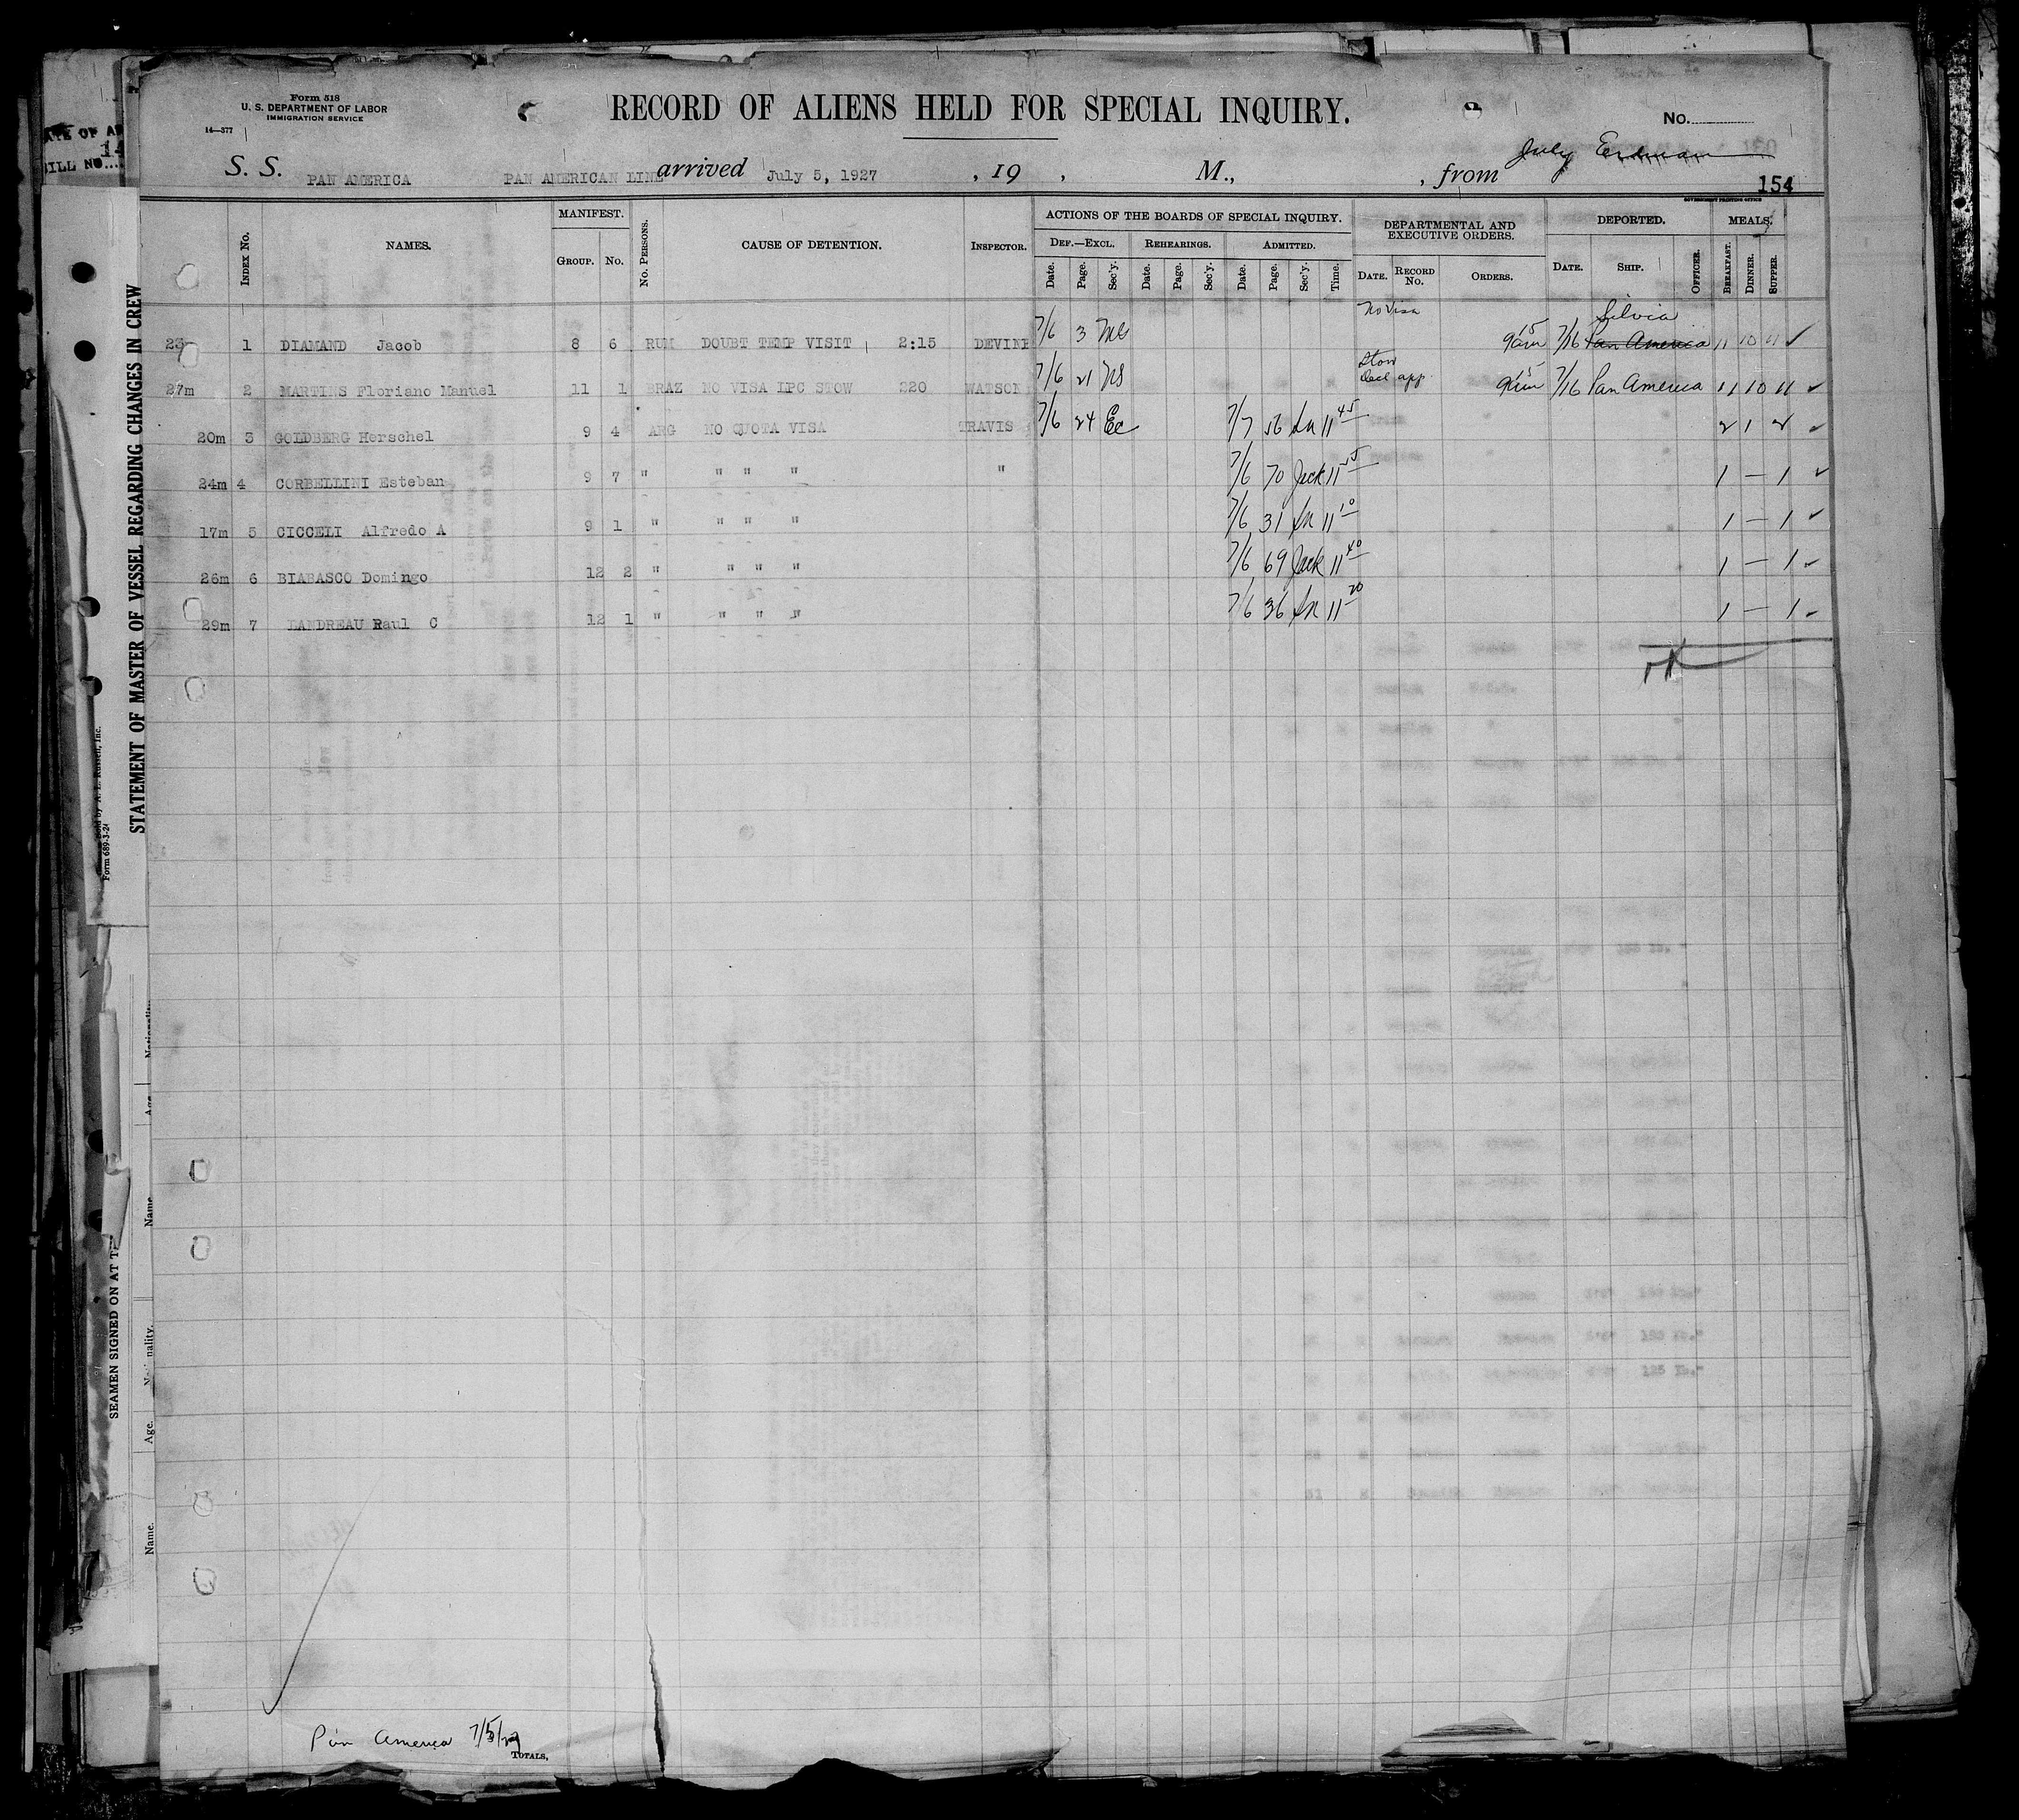 Form 518
U. S. DEPARTMENT OF LABOR
IMMIGRATION SERVICE
14—377
RECORD OF ALIENS HELD FOR SPECIAL INQUIRY.
No.
S. S. PAN AMERICA PAN AMERICAN LINE arrived July 5, 1927 , 19 , M., , from
July Erdman
154
GOVERNMENT PRINTING OFFICE
INDEX No. NAMES. MANIFEST. GROUP. No. No. PERSONS. CAUSE OF DETENTION. INSPECTOR. ACTIONS OF THE BOARDS OF SPECIAL INQUIRY. DEF.—EXCL. REHEARINGS. ADMITTED. Date. Page. Sec'y. Date. Page. Sec'y. Date. Page. Sec'y. Time. DEPARTMENTAL AND EXECUTIVE ORDERS. DATE. RECORD No. ORDERS. DEPORTED. DATE. SHIP. OFFICER. MEALS. BREAKFAST. DINNER. SUPPER.
No Visa Silvia
23m 1 DIAMAND Jacob 8 6 RUM DOUBT TEMP VISIT 2:15 DEVINE 7/6 3 915am 7/16 Pan America 11 10 11 ✓
Stow
27m 2 MARTINS Floriano Manuel 11 1 BRAZ NO VISA LPC STOW 220 WATSON 7/6 21 Decl app. 915am 7/16 Pan America 11 10 11 ✓
20m 3 GOLDBERG Herschel 9 4 ARG NO QUOTA VISA TRAVIS 7/6 24 Ec 7/7 56 11 45 2 1 2 ✓
24m 4 CORBELLINI Esteban 9 7 " " " " " 7/6 70 Jack 11 25 1 — 1 ✓
17m 5 CICCELI Alfredo A 9 1 " " " " 7/6 31 11 10 1 — 1 ✓
26m 6 BIABASCO Domingo 12 2 " " " " 7/6 69 Jack 11 40 1 — 1 ✓
29m 7 LANDREAU Raul C 12 1 " " " " 7/6 36 11 20 1 — 1 ✓
OK
Pan America 7/5/27
TOTALS,
STATEMENT OF MASTER OF VESSEL REGARDING CHANGES IN CREW
Sold by A. L. Russell, Inc.
Form 689-3-24
SEAMEN SIGNED ON AT
Name.
Age.
Nationality.
Name
Age
BILL NO.
14